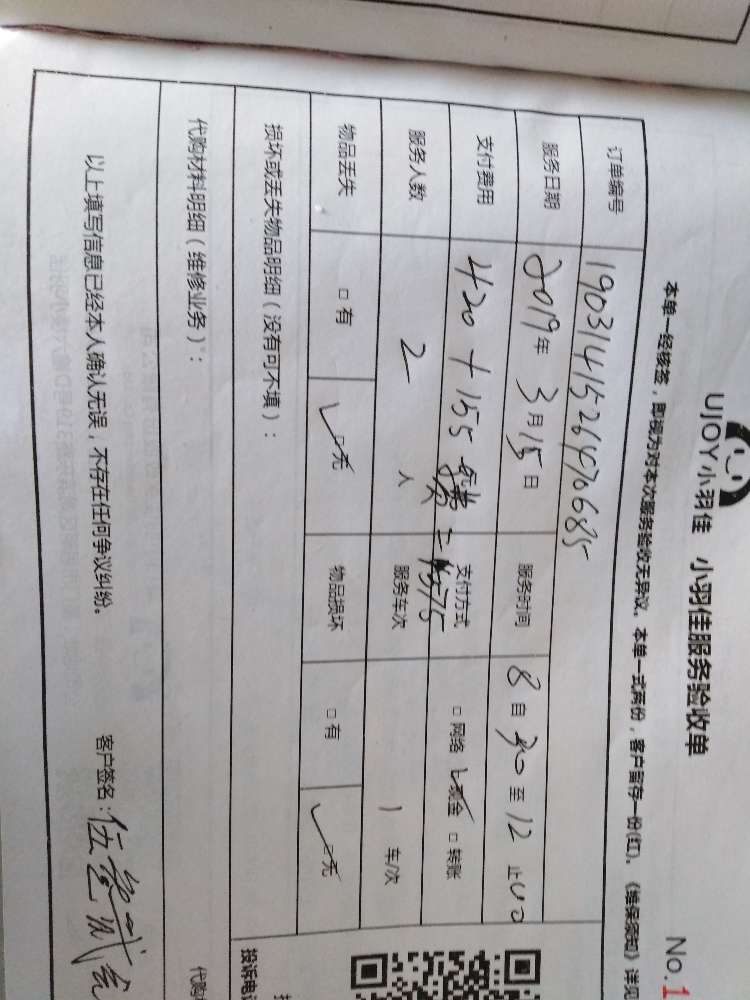 UJOY小羽佳 小羽佳服务验收单
No.1
本单一经核签，即视为对本次服务验收无异议。本单一式两份，客户留存一份(红)。《维保须知》详见
订单编号 190314152647685
服务日期 2019年 3月15日 服务时间 8自30至12止00
支付费用 420+155 = 575 支付方式 □网络 □现金 □转账
服务人数 2 人 服务车次 1 车/次
物品丢失 □有 □无 物品损坏 □有 □无
损坏或丢失物品明细（没有可不填）：
代购材料明细（维修业务）：
以上填写信息已经本人确认无误，不存在任何争议纠纷。 客户签名：伍
投诉电
代购